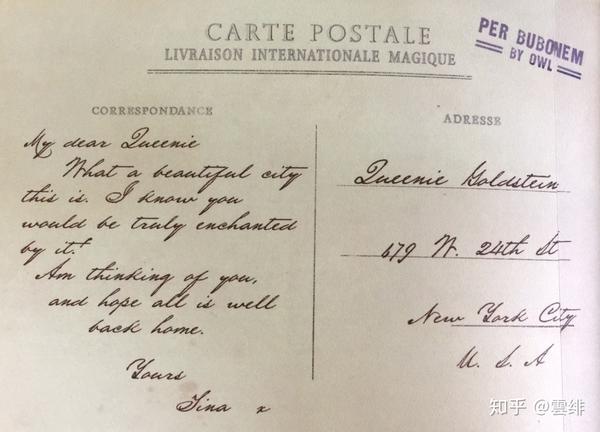 CARTE POSTALE
LIVRAISON INTERNATIONALE MAGIQUE
PER BUBONEM
BY OWL
CORRESPONDANCE
My dear Queenie
What a beautiful city
this is. I know you
would be truly enchanted
by it!
Am thinking of you,
and hope all is well
back home.
Yours
Tina x
ADRESSE
Queenie Goldstein
679 W. 24th St
New York City
U. S. A
知乎 @雲绯